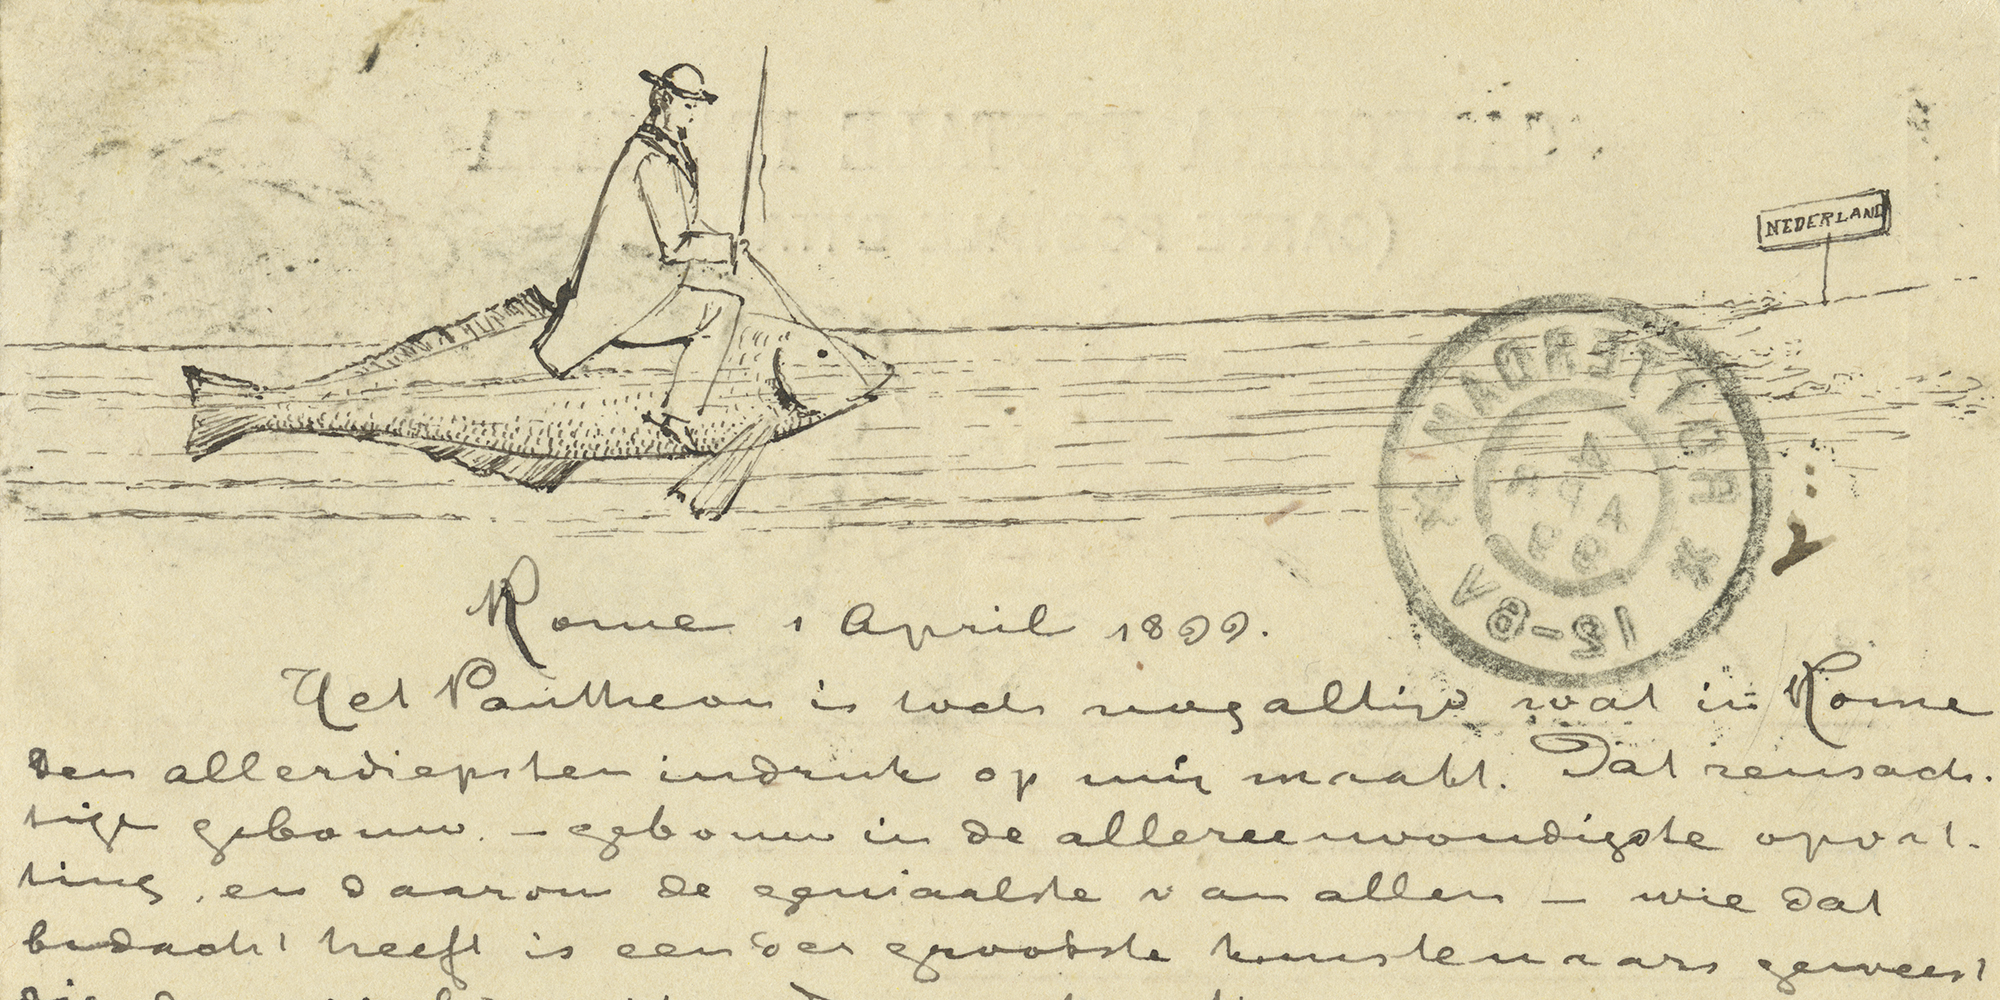 NEDERLAND
ROTTERDAM
4
APR
99
12-6V
Rome 1 April 1899.
Het Pantheon is toch nog altijd wat in Rome
den allerdiepsten indruk op mij maakt. Dat reusach-
tige gebouw. – gebouw in de allereenvoudigste opvat-
ting, en daarom de geniaalste van allen – wie dat
bedacht heeft is een der grootste kunstenaars geweest